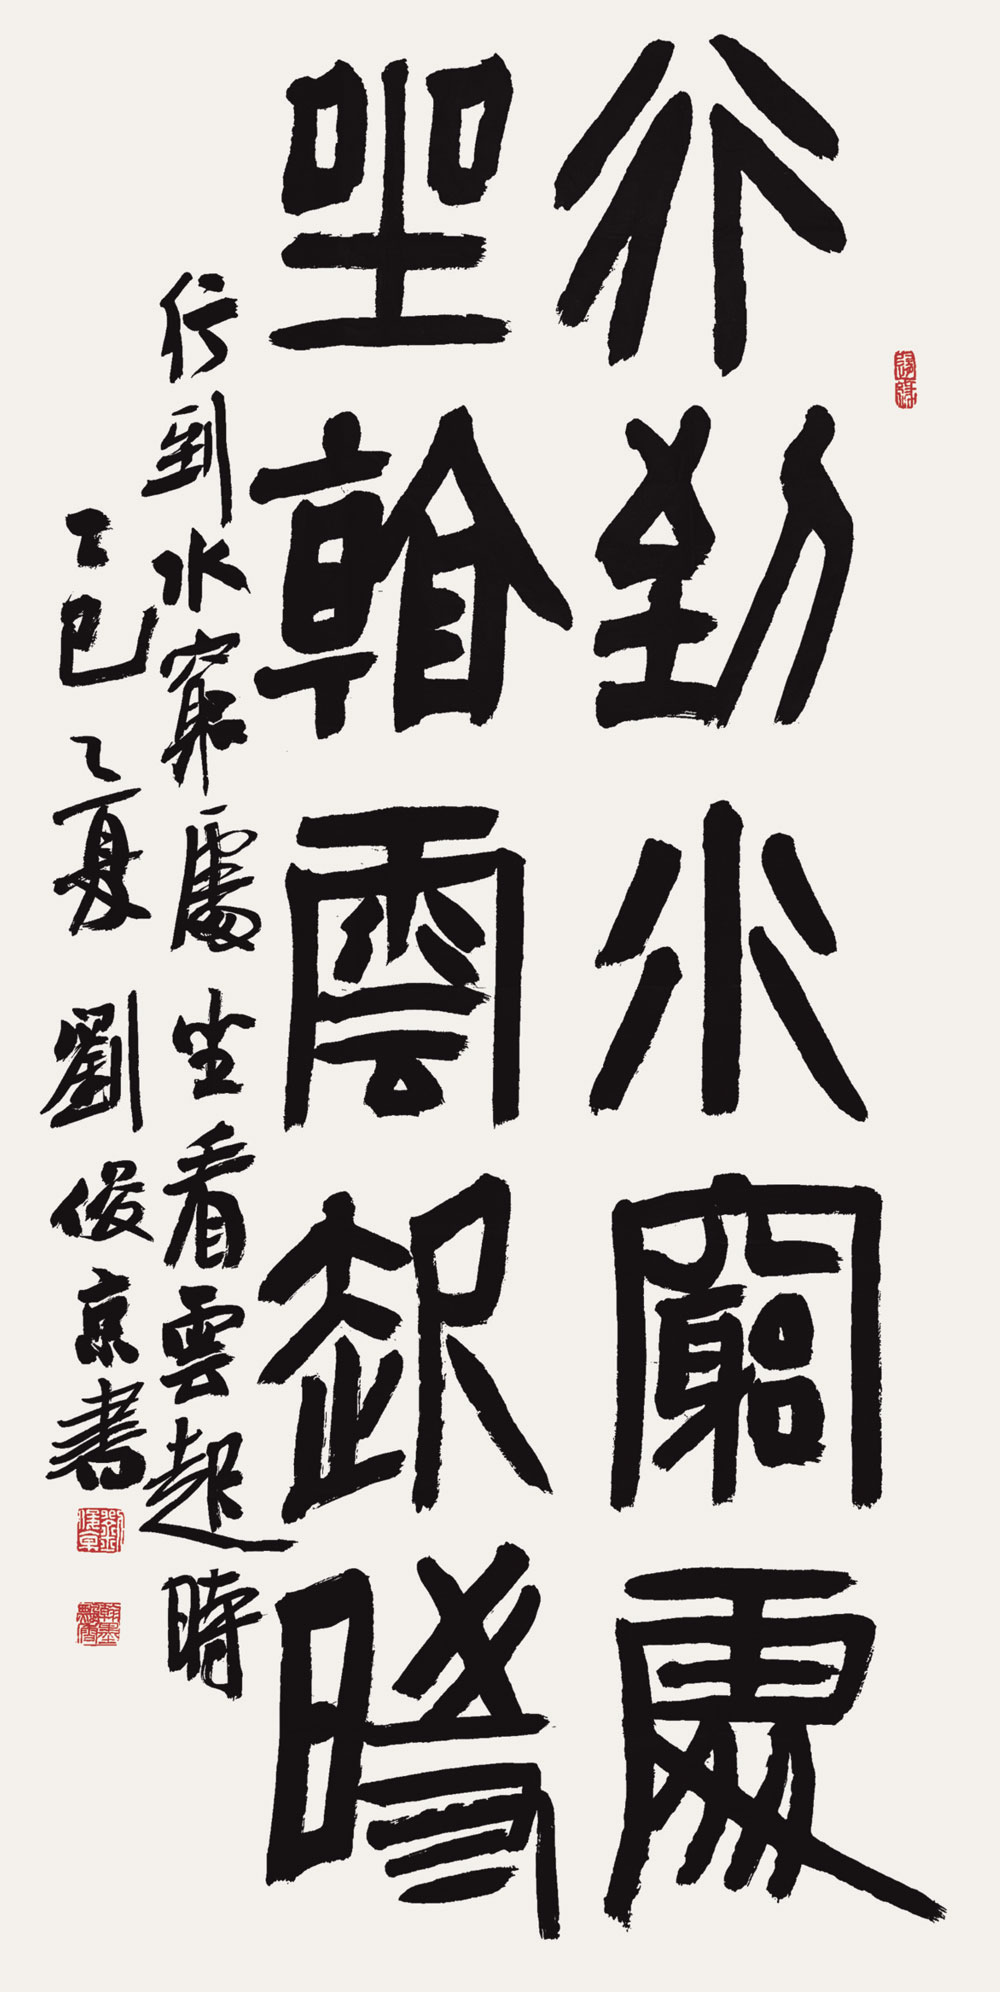 行到水窮處
坐看雲起時
行到水窮處坐看雲起時
乙巳之夏 劉俊京書
劉俊京